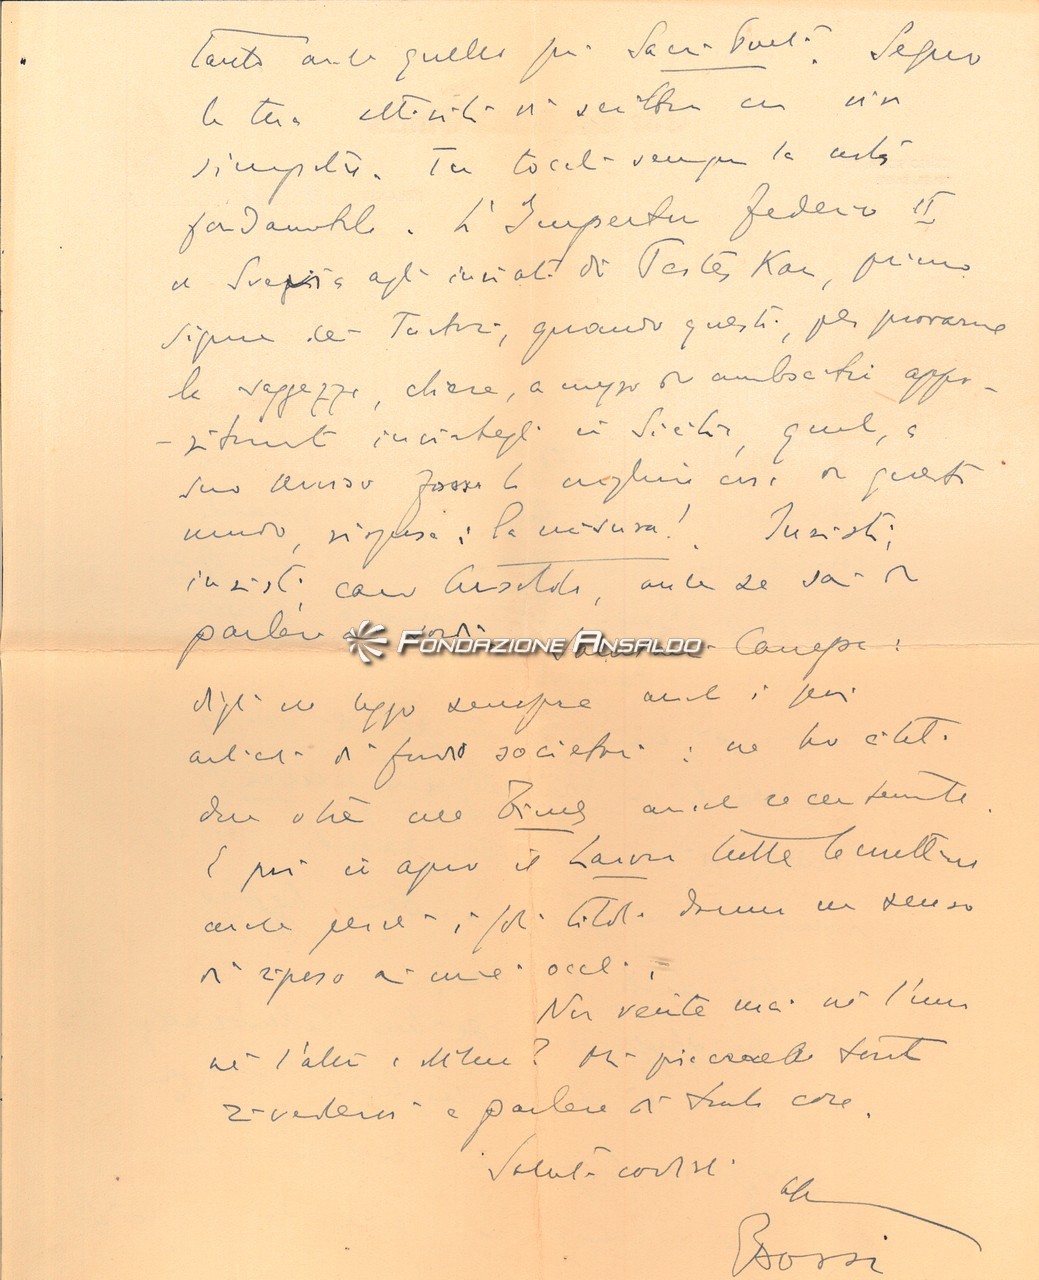 Tanto anche quello su Sacra Povertà? Seguo
la tua attività di scrittore con viva
simpatia. Tu tocchi sempre la corda
fondamentale. L'Imperatore Federico II
di Svevia agli inviati di Kan, primo
signore dei Tartari, quando questi, per provarne
la saggezza, chiese, a mezzo di ambasciatori appo-
-sitamente inviatigli in Sicilia, quale, a
suo avviso fosse la migliore cosa di questo
mondo, rispose: la misura! Insisti,
insisti, caro Ansaldo, anche se sai di
parlare ai sordi. Canepa:
digli che leggo sempre anche i suoi
articoli di fondo societari: ne ho citati
due o tre nel anche recentemente.
E poi io apro il Lavoro tutte le mattine
anche perché i suoi titoli danno un senso
di riposo ai miei occhi.
Non venite mai né l'uno
né l'altro a Milano? Mi piacerebbe tanto
rivedervi e parlare di tante cose.
Saluti cordiali
FONDAZIONE ANSALDO